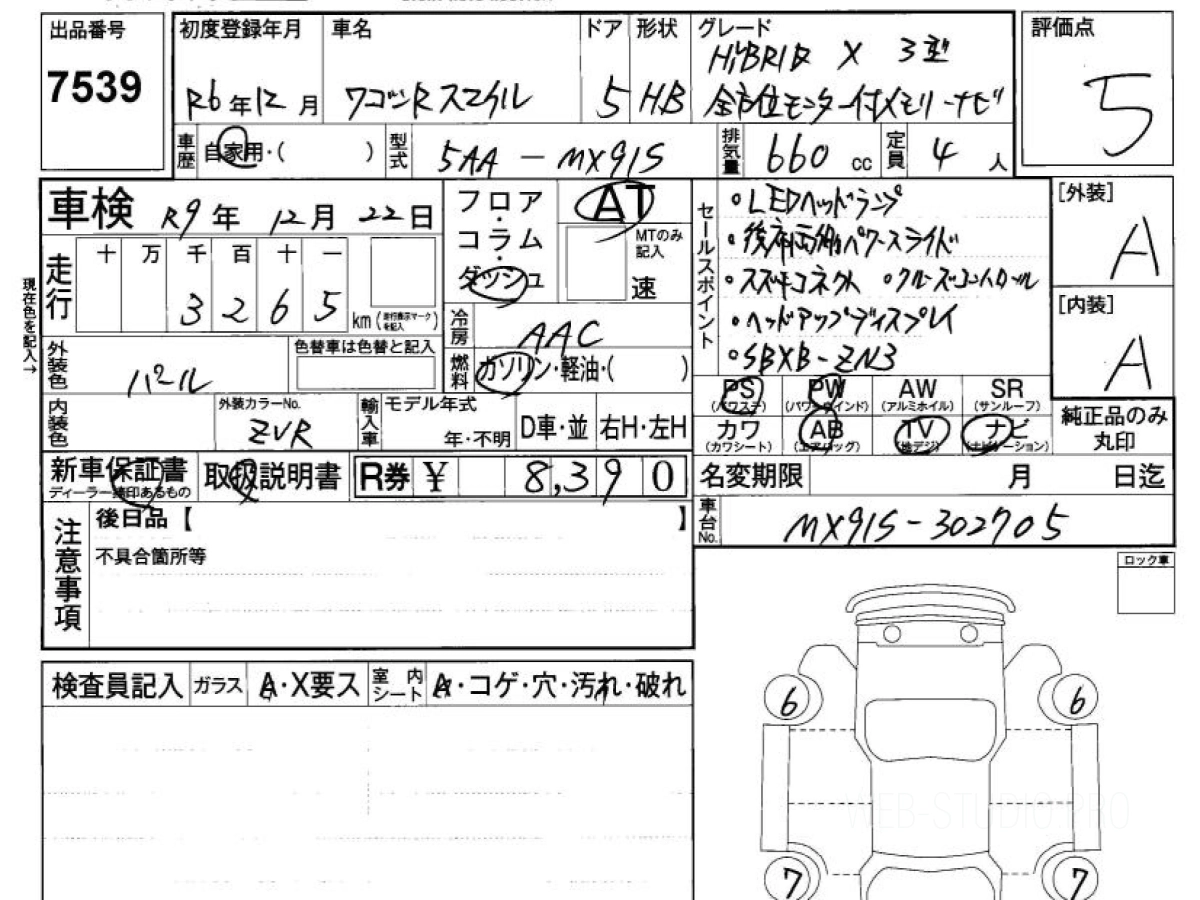 出品番号
7539
初度登録年月
R6年12月
車名
ワゴンRスマイル
ドア
5
形状
HB
グレード
HYBRID X 3型
全方位モニター付メモリーナビ
評価点
5
車歴
自家用・( )
型式
5AA-MX91S
排気量
660cc
定員
4人
車検
R9年12月22日
フロア・コラム・ダッシュ
AT
MTのみ記入
速
セールスポイント
・LEDヘッドランプ
・後席両側パワースライド
・スズキコネクト ・クルーズコントロール
・ヘッドアップディスプレイ
・SBXB-ZN3
[外装]
A
[内装]
A
現在色を記入→
走行
十万千百十一
3265
km(走行表示マークを記入)
冷房
AAC
燃料
ガソリン・軽油・( )
外装色
パール
色替車は色替と記入
内装色
外装カラーNo.
ZVR
輸入車
モデル年式
年・不明
D車・並
右H・左H
PS
(パワステ)
PW
(パワーウインド)
AW
(アルミホイル)
SR
(サンルーフ)
カワ
(カワシート)
AB
(エアバッグ)
TV
(地デジ)
ナビ
(ナビゲーション)
純正品のみ
丸印
新車保証書
ディーラー捺印あるもの
取扱説明書
R券 ¥ 8,390
名変期限 月 日迄
車台No.
MX91S-302705
注意事項
後日品【 】
不具合箇所等
ロック車
検査員記入
ガラス
A・X要ス
室内シート
A・コゲ・穴・汚れ・破れ
6
6
7
7
WEB-STUDIO.PRO